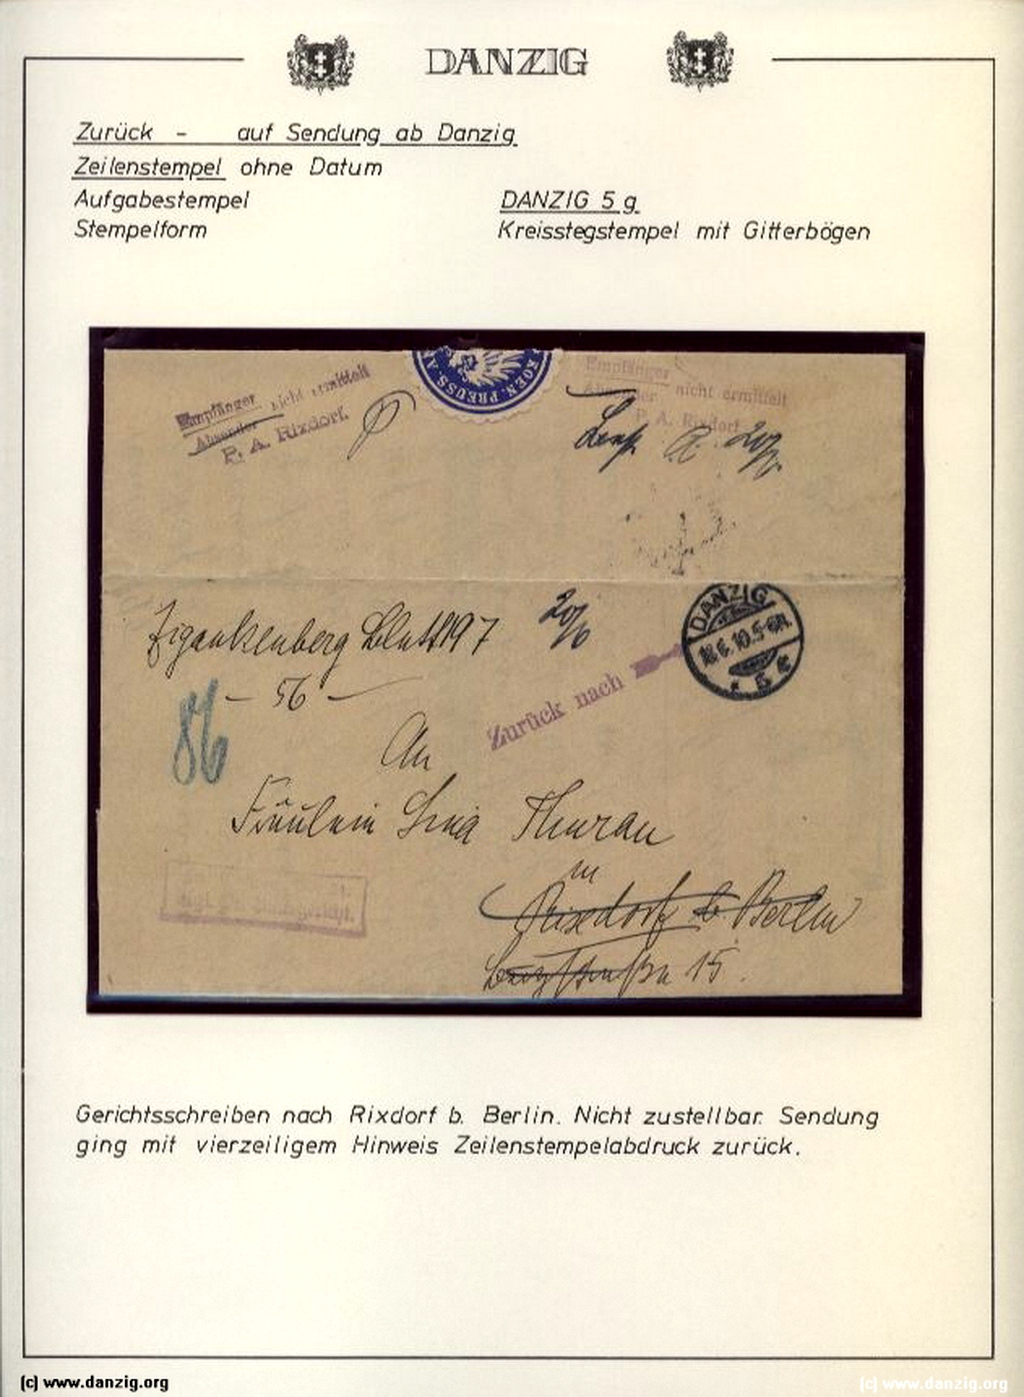 DANZIG
Zurück - auf Sendung ab Danzig
Zeilenstempel ohne Datum
Aufgabestempel DANZIG 5 g
Stempelform Kreisstegstempel mit Gitterbögen
KOEN. PREUSS. A
Empfänger nicht ermittelt
Absender
P. A. Rixdorf.
Empfänger nicht ermittelt
P. A. Rixdorf
20/6
Zigankenberg Blatt 197
20/6
DANZIG
6.10.5-6N.
* 5
- 56 -
86
Zurück nach
An
Fräulein Lina Thurau
in
Rixdorf b. Berlin
15.
Gerichtsschreiben nach Rixdorf b. Berlin. Nicht zustellbar. Sendung
ging mit vierzeiligem Hinweis Zeilenstempelabdruck zurück.
(c) www.danzig.org
(c) www.danzig.org